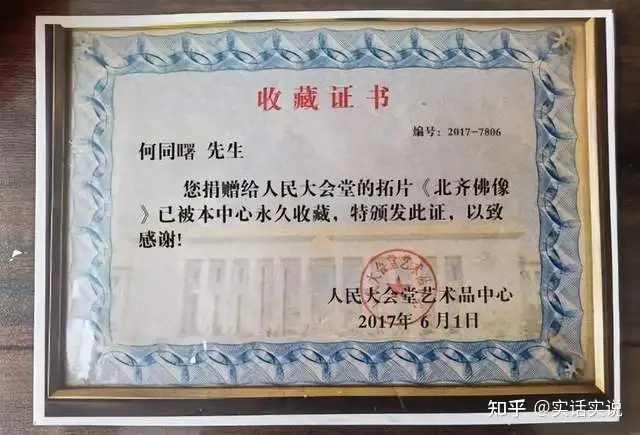 收藏证书
编号：2017-7806
何同曙 先生
您捐赠给人民大会堂的拓片《北齐佛像
》已被本中心永久收藏，特颁发此证，以致
感谢!
大会堂艺术品
人民大会堂艺术品中心
2017年6月1日
知乎 @实话实说